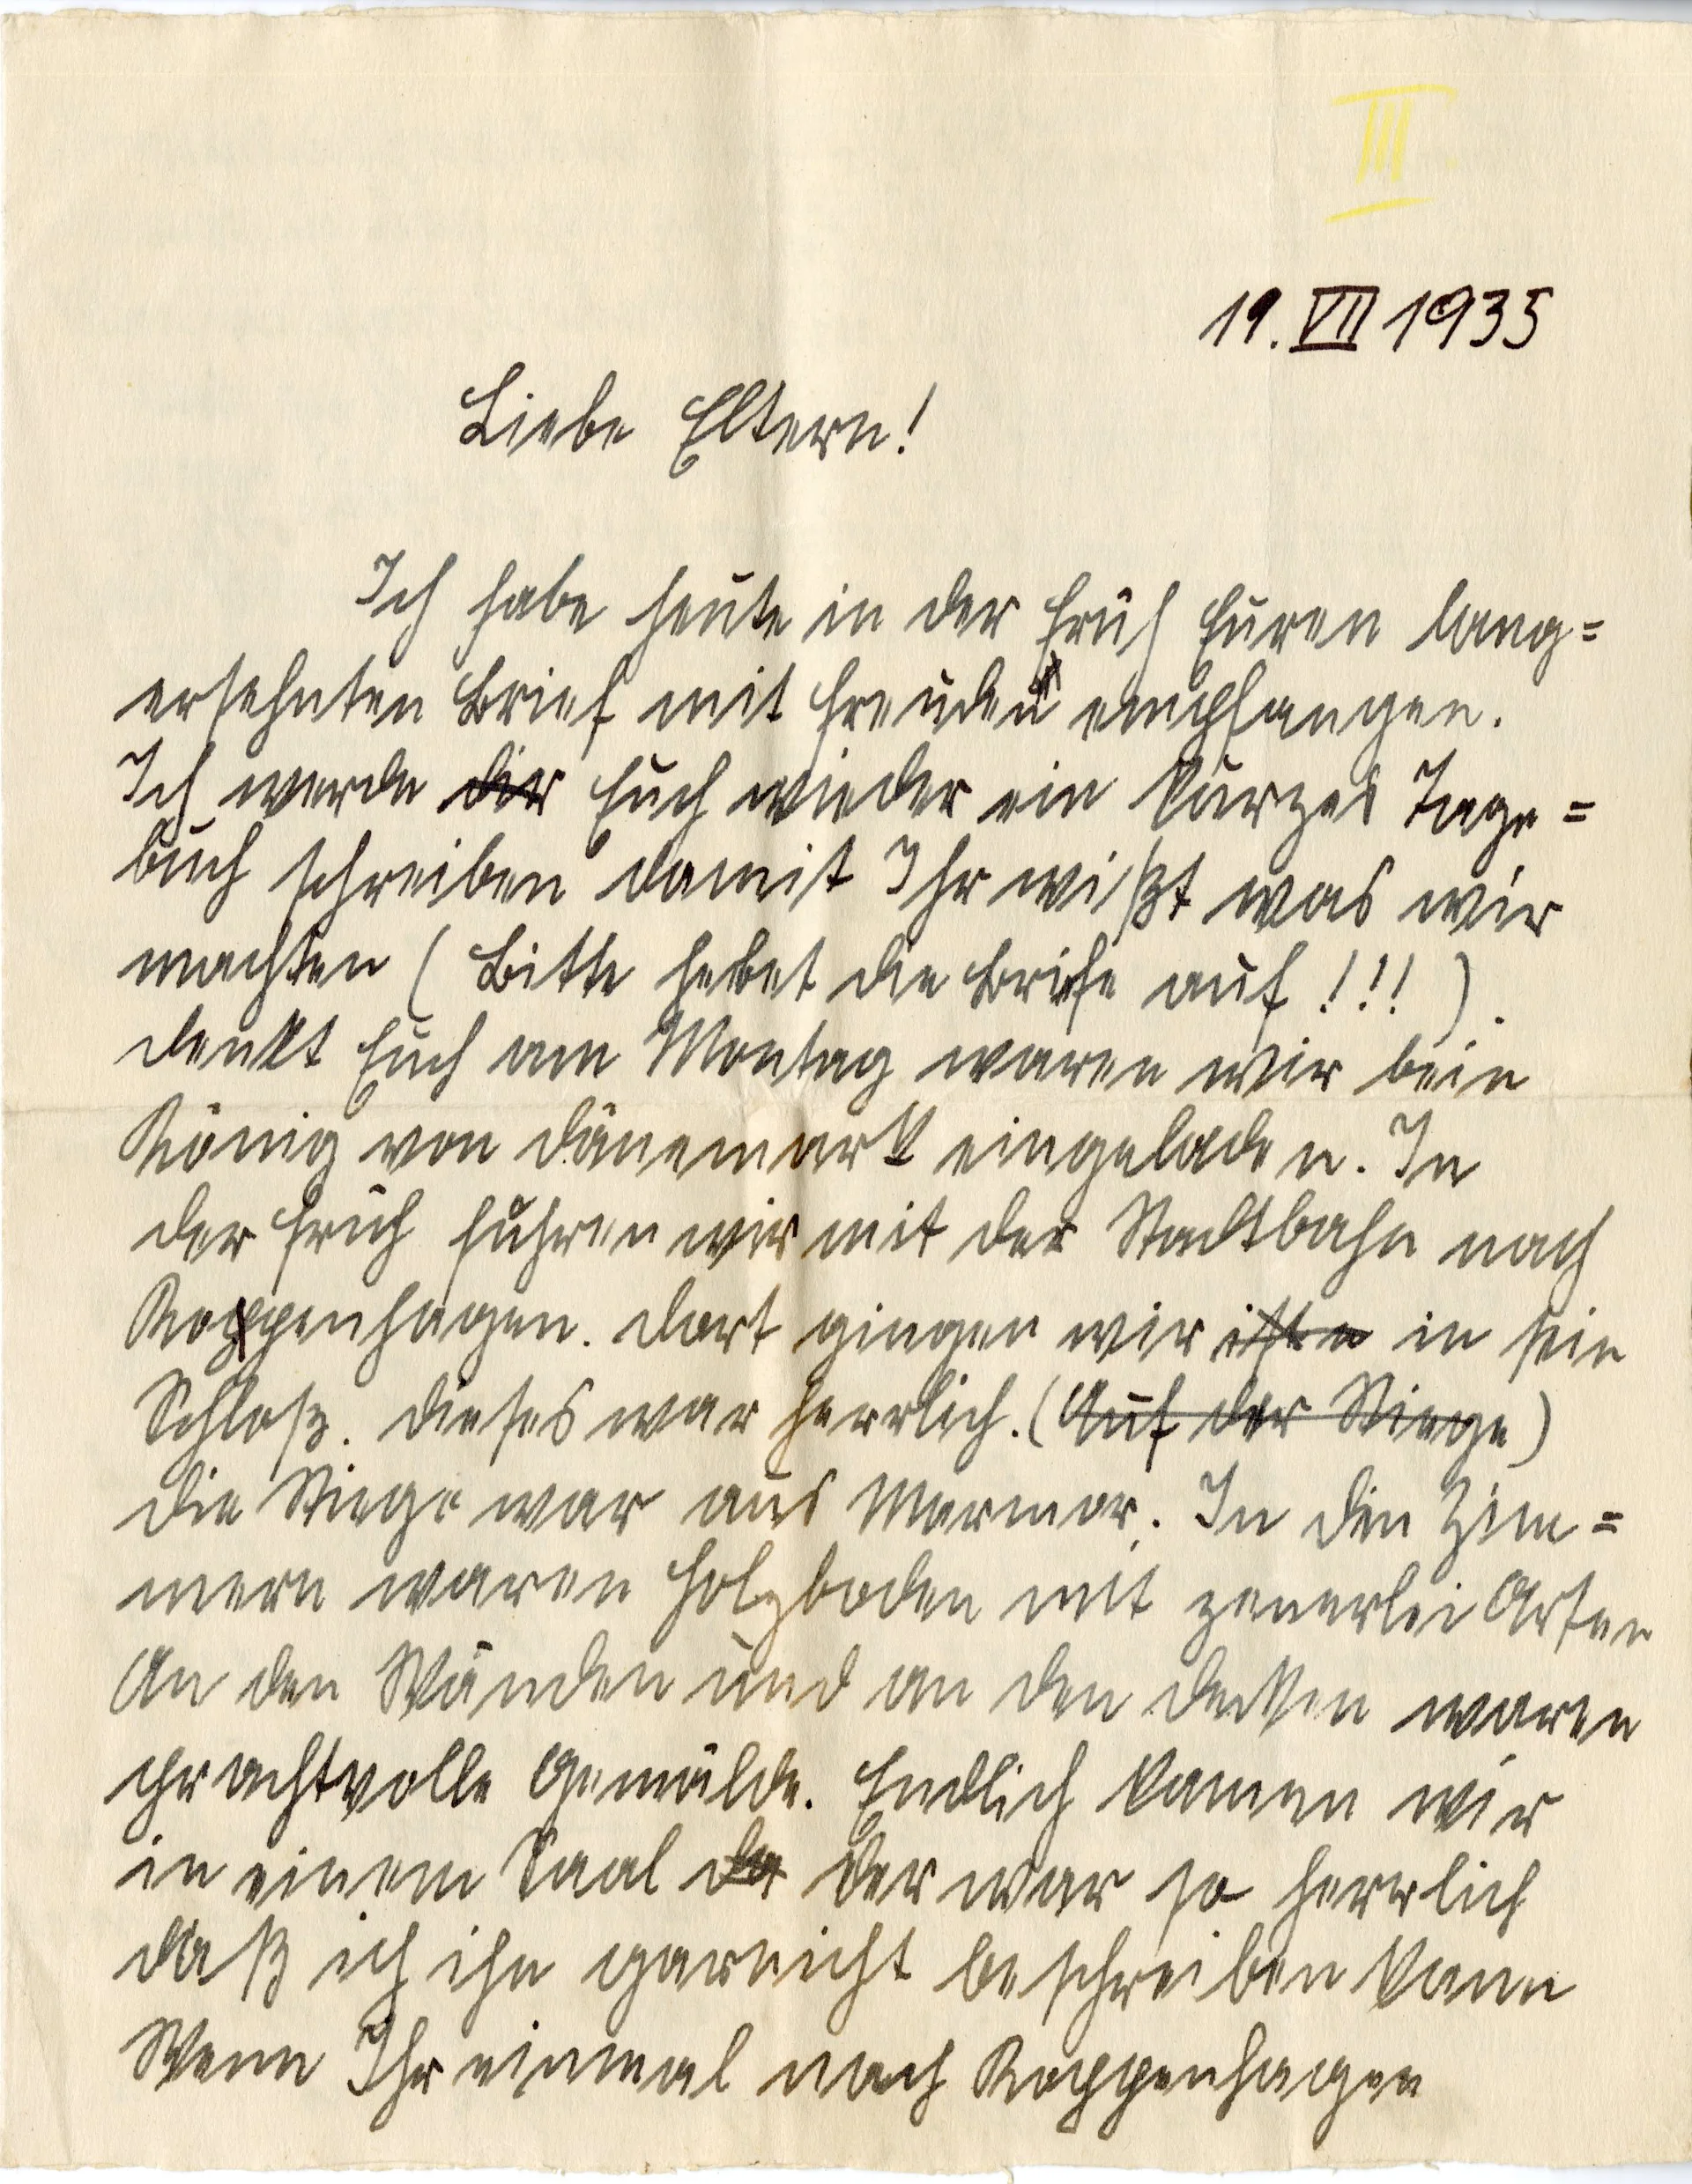 III
19. VII 1935
Liebe Eltern!
Ich habe heute in der Früh Euren lang=
ersehnten Brief mit Freuden empfangen.
Ich werde dir Euch wieder ein kurzes Tage=
buch schreiben damit Ihr wißt was wir
machten (Bitte hebet die Briefe auf !!!).
denkt Euch am Montag waren wir bein
König von Dänemark eingeladen. In
der Früh fuhren wir mit der Stadtbahn nach
Koppenhagen. dort gingen wir in sein
Schloß. dieses war herrlich. (Auf der Stiege)
die Stiege war aus Marmor. In den Zim=
mern waren Holzboden mit zenerlei Arten
An den Wänden und an den decken waren
prachtvolle Gemälde. Endlich kamen wir
in einem Saal der war so herrlich
daß ich ihn garnicht beschreiben kann
Wenn Ihr einmal nach Koppenhagen